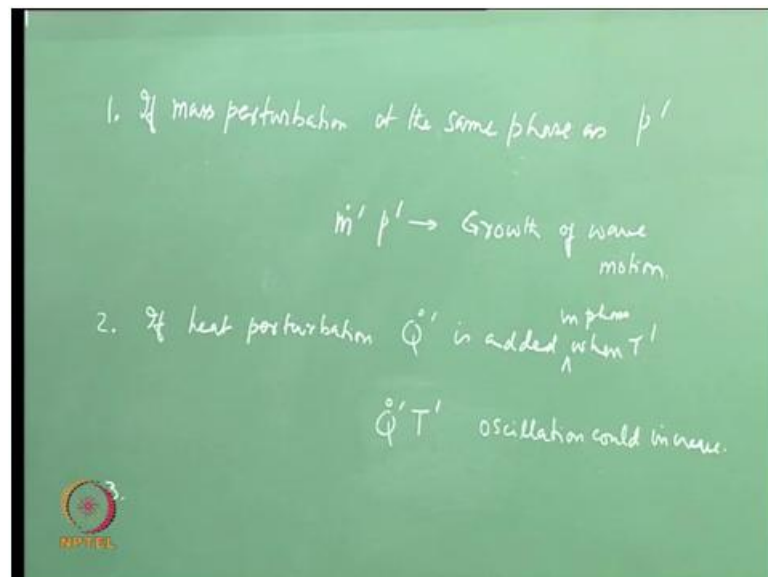 1. If mass perturbation at the same phase as p'
ṁ' p' → Growth of wave
motion.
in phase
2. If heat perturbation Q̊' is added ^ when T'
Q̊' T' oscillation could increase.
3.
NPTEL